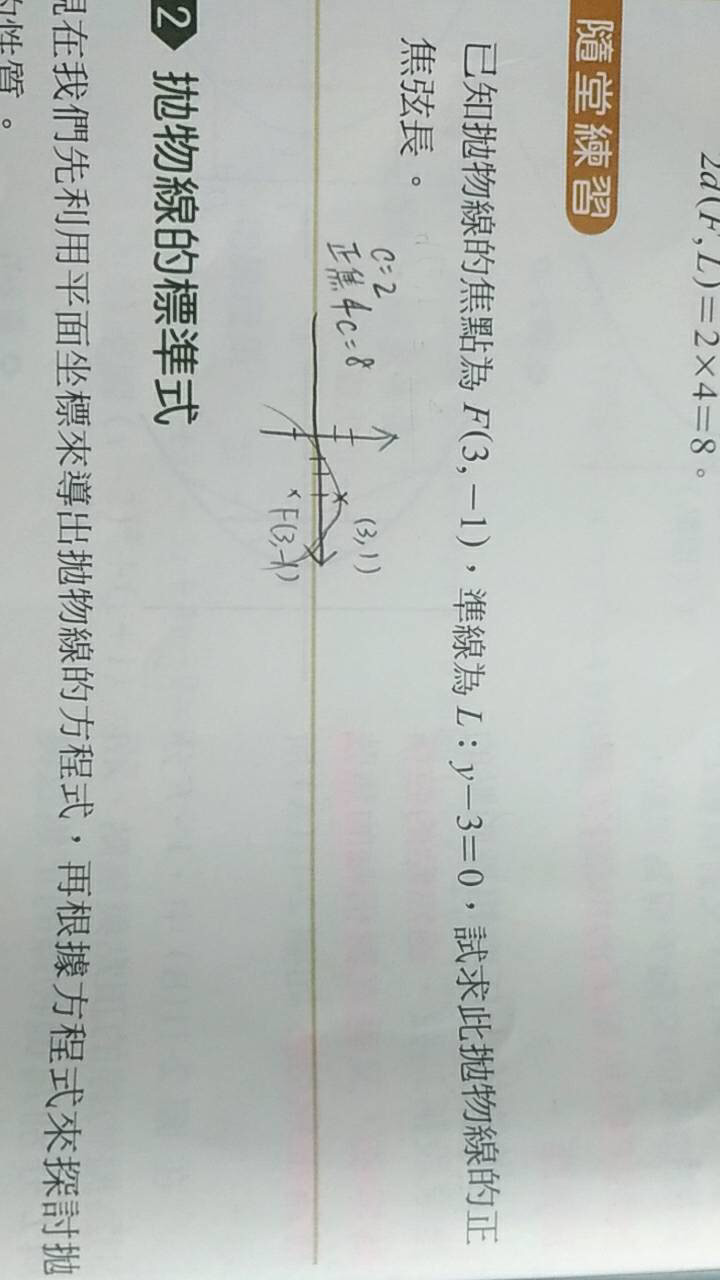 2d(F, L)=2×4=8。
隨堂練習
已知拋物線的焦點為 F(3, −1)，準線為 L：y−3=0，試求此拋物線的正
焦弦長。
c=2
正焦 4c=8
(3,1)
F(3,-1)
2 拋物線的標準式
現在我們先利用平面坐標來導出拋物線的方程式，再根據方程式來探討拋
的性質。